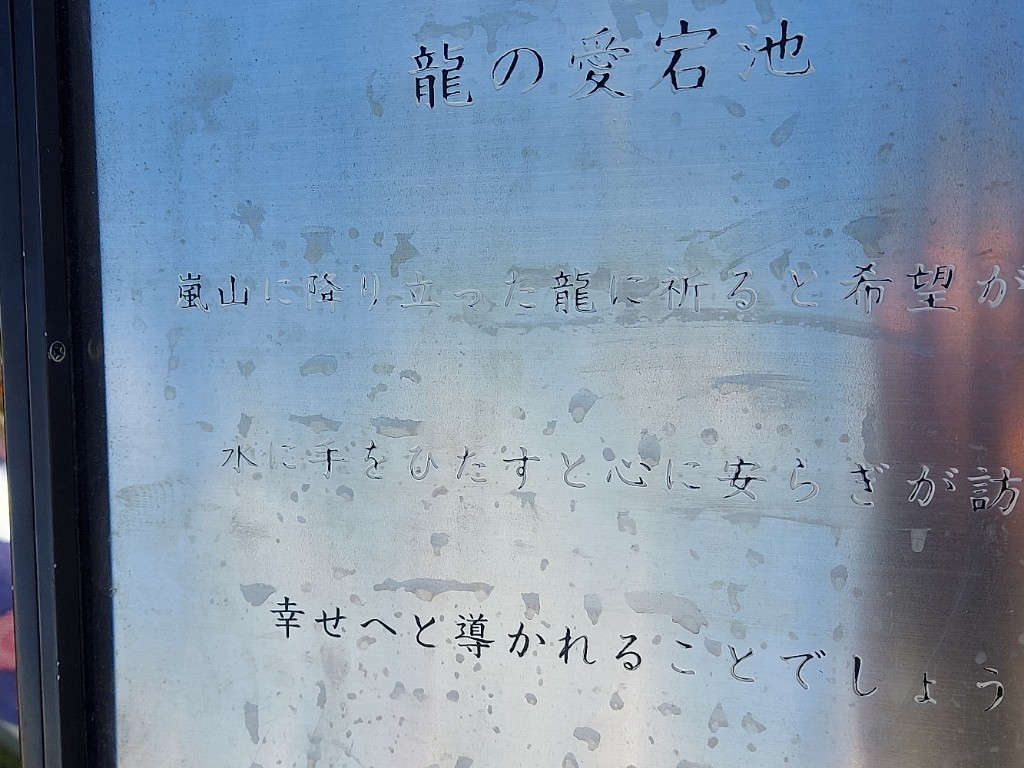 龍の愛宕池
嵐山に降り立った龍に祈ると希望が
水に手をひたすと心に安らぎが訪
幸せへと導かれることでしょう